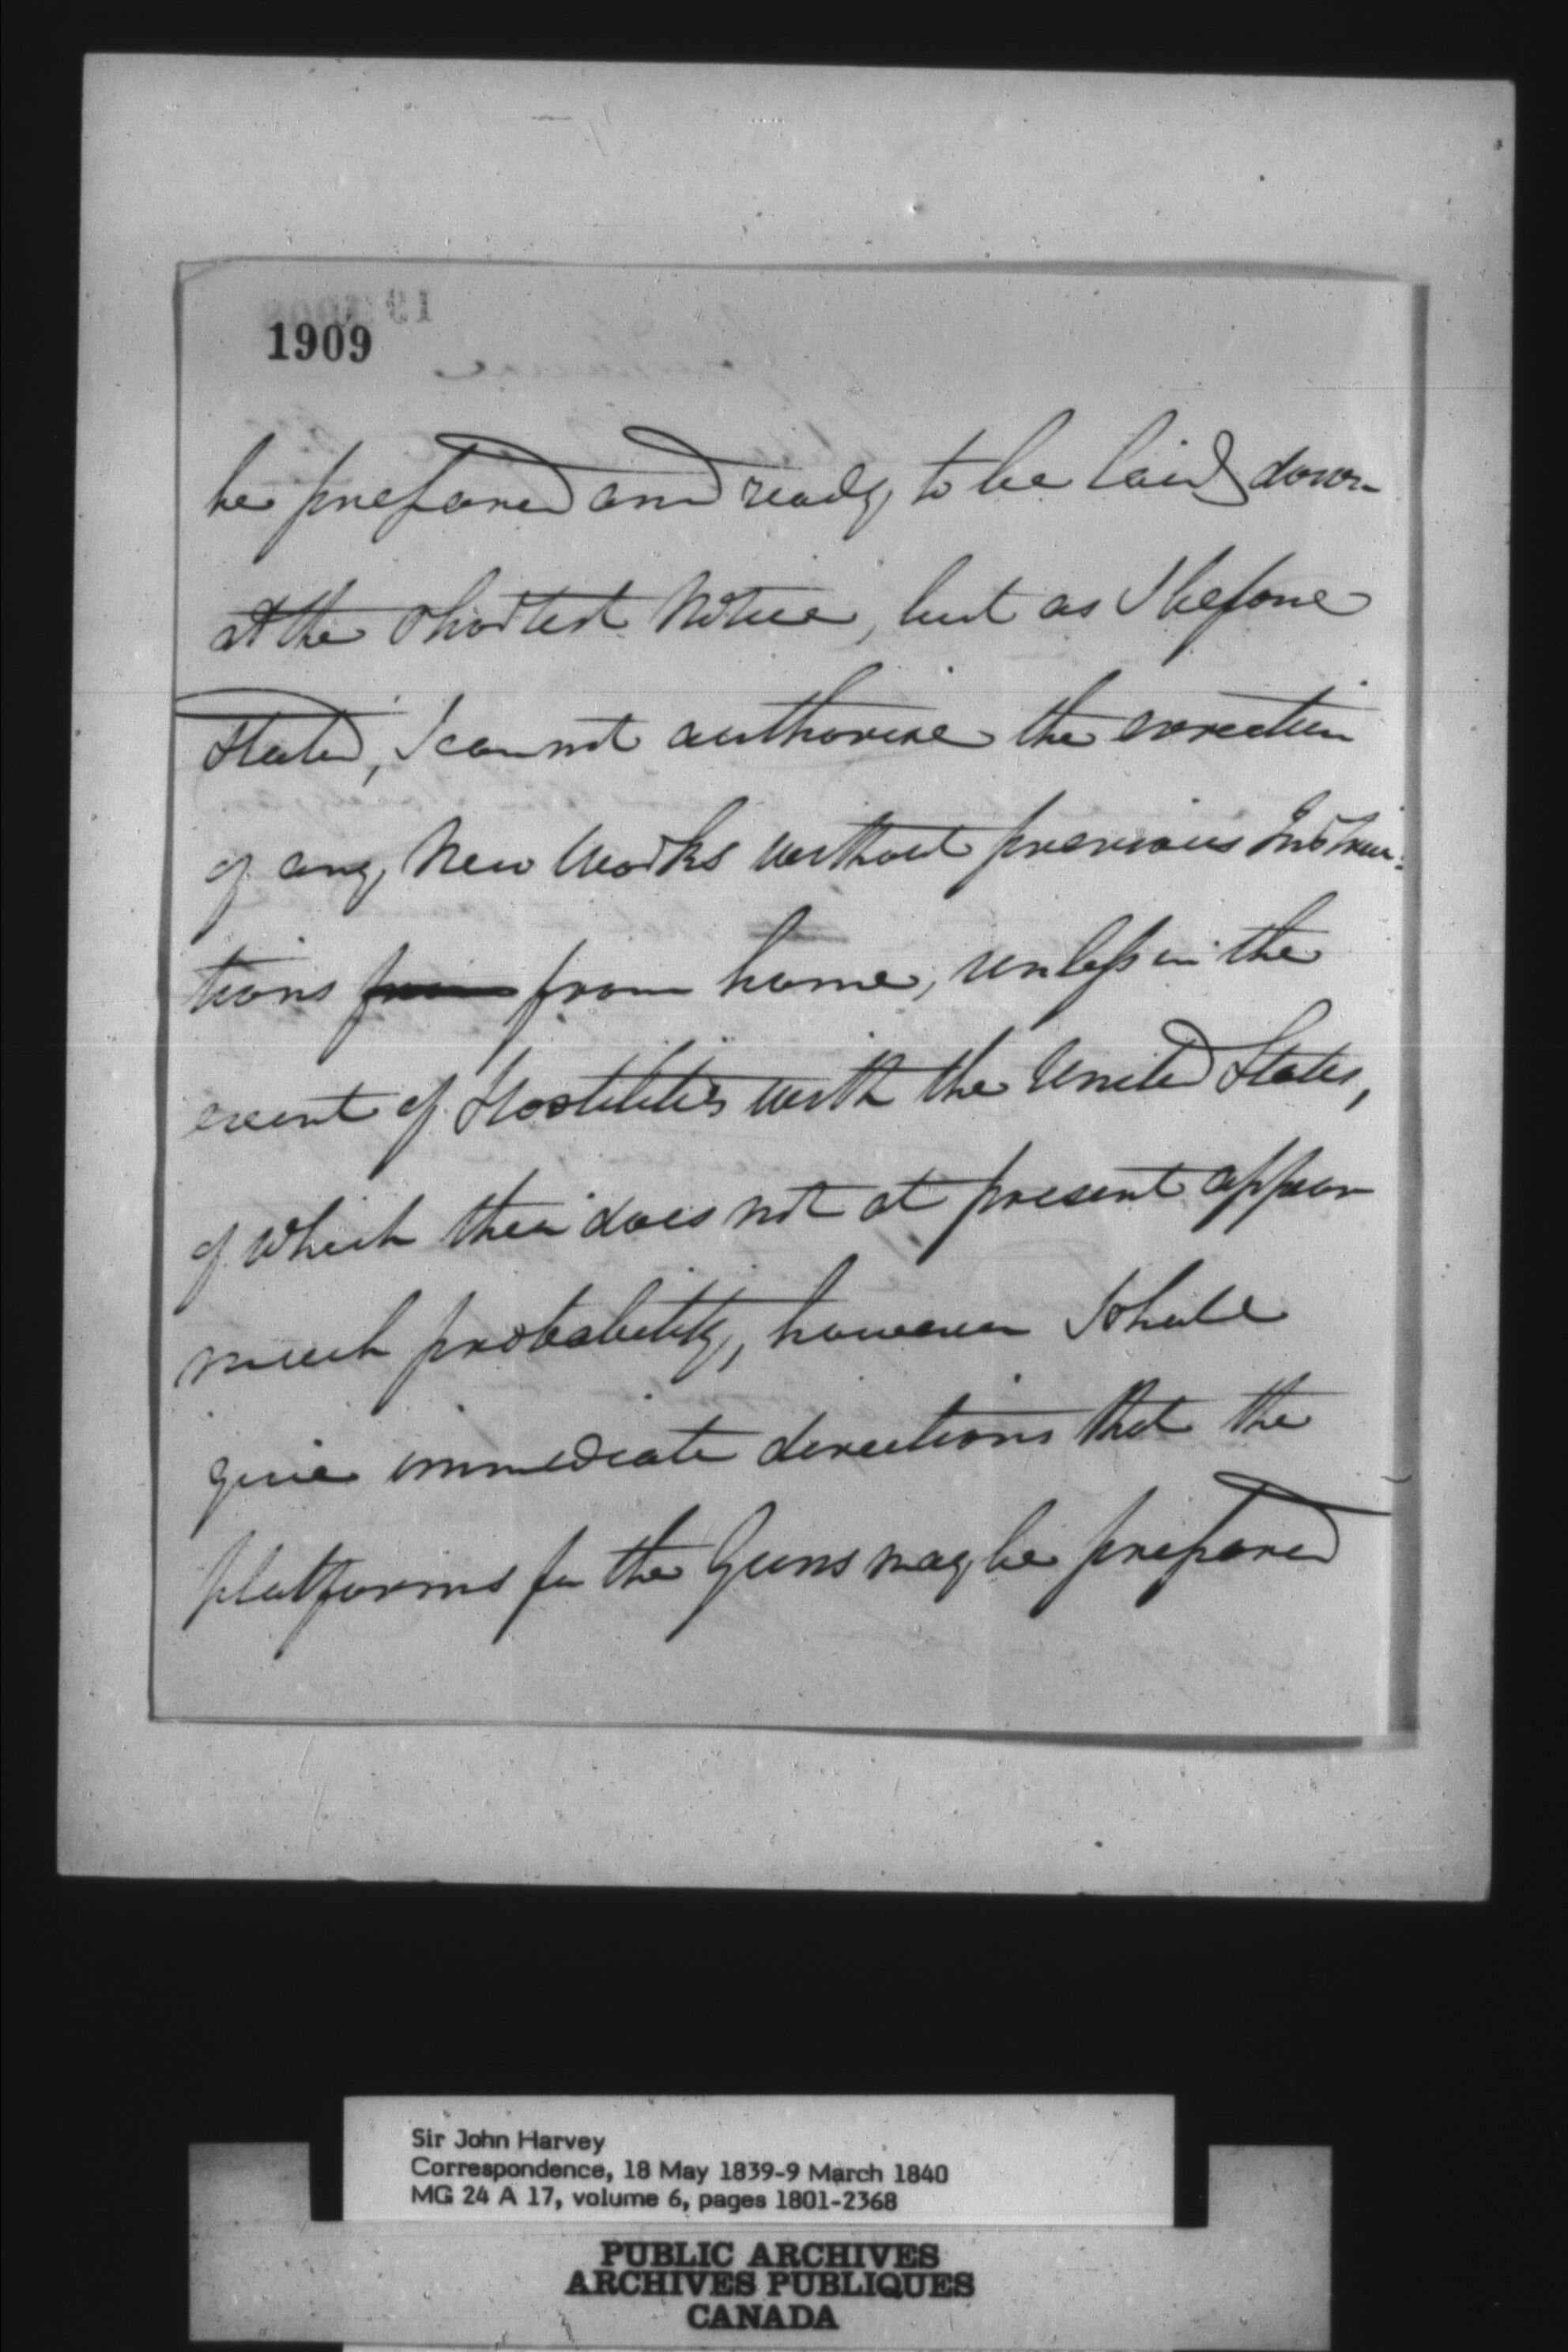 1909
be prepared and ready to be laid down
at the shortest Notice, but as I before
Stated, I cannot authorise the erection
of any New Works without previous Instruc:
tions from from home, unless in the
event of Hostilities with the United States,
of which their does not at present appear
much probability, however I shall
give immediate directions that the
platforms for the Guns may be prepared
Sir John Harvey
Correspondence, 18 May 1839-9 March 1840
MG 24 A 17, volume 6, pages 1801-2368
PUBLIC ARCHIVES
ARCHIVES PUBLIQUES
CANADA